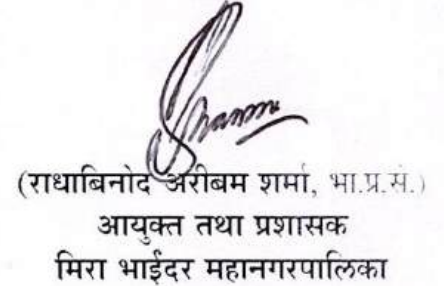 (राधाबिनोद अरीबम शर्मा, भा.प्र.से.)
आयुक्त तथा प्रशासक
मिरा भाईंदर महानगरपालिका